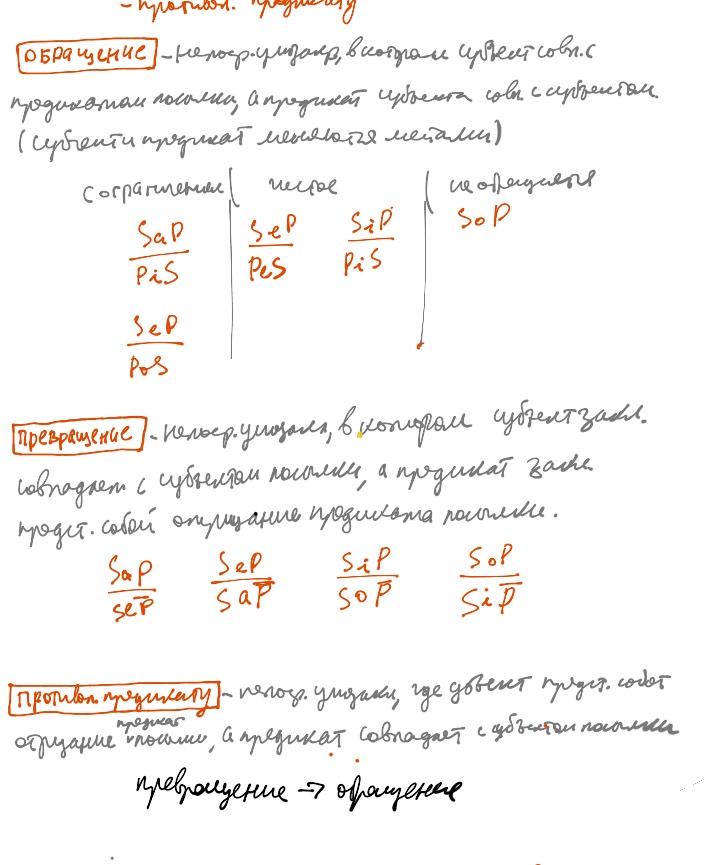 - противоп. предикату
ОБРАЩЕНИЕ - непоср. умозакл, в котором субъект совп. с
предикатом посылки, а предикат субъекта совп. с субъектом.
(субъект и предикат меняются местами)
с ограничением чистое не обращается
SaP SeP SiP SoP
PiS PeS PiS
SeP
PoS
ПРЕВРАЩЕНИЕ - непоср. умозакл, в котором субъект закл.
совпадает с субъектом посылки, а предикат закл
предст. собой отрицание предиката посылки.
SaP SeP SiP SoP
SeP̅ SaP̅ SoP̅ SiP̅
Противоп. предикату - непоср. умозакл, где субъект предст. собой
предикат
отрицание посылки, а предикат совпадает с субъектом посылки
превращение → обращение